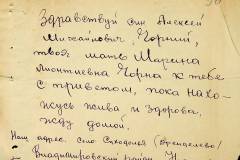 Здравствуй син Алексей
Михайлович, Чорний,
твоя мать Марина
Леонтиевна Чорна к тебе
с приветом, пока нахо-
жусь жива и здорова,
жду домой.
Наш адрес. село
Владимировский район